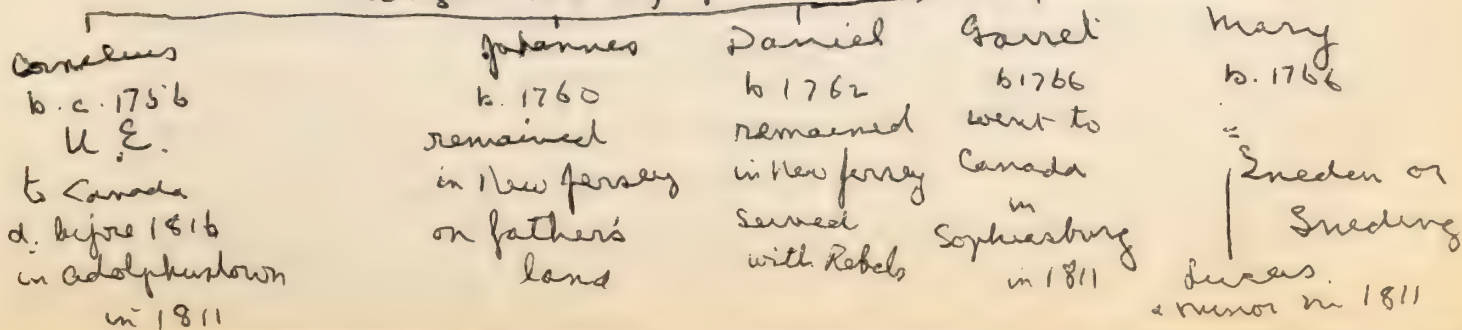 Cornelius
b. c. 1756
U. E.
to Canada
d. before 1816
in Adolphustown
in 1811
Johannes
b. 1760
remained
in New Jersey
on father's
land
Daniel
b 1762
remained
in New Jersey
served
with Rebels
Garret
b 1766
went to
Canada
in
Sophiasburg
in 1811
Mary
b. 1766
=
Sneden or
Sneding
Lucas
a minor in 1811